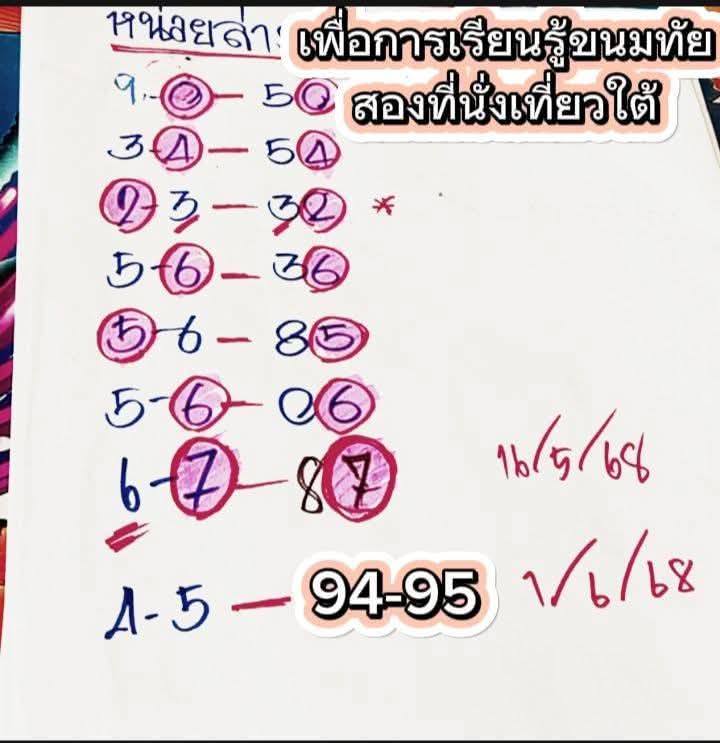 หน่อยล่าง
เพื่อการเรียนรู้ขนมทัย
สองที่นั่งเที่ยวใต้
9-0-50
34-54
2-3-32 *
5-6-36
5-6-85
5-6-06
6-7-87
16/5/68
4-5-94-95
1/6/68